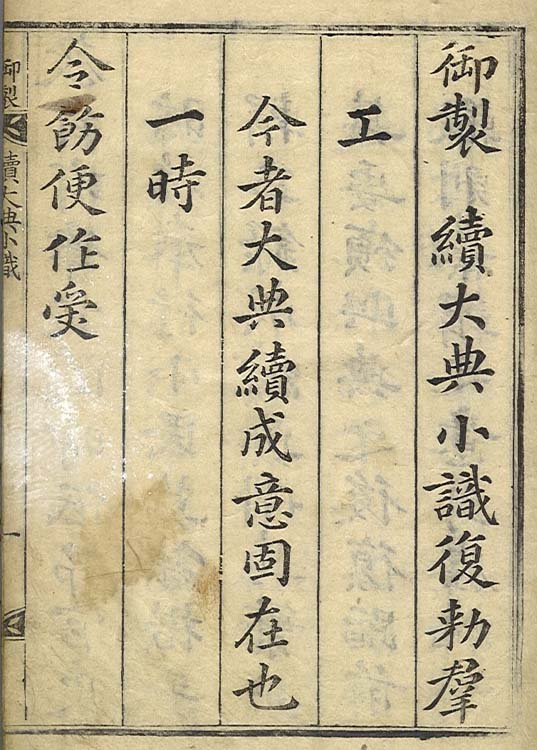 御製 續大典小識復勑羣
工
今者大典續成意固在也
一時
令飭便作受
御製 續大典小識
一